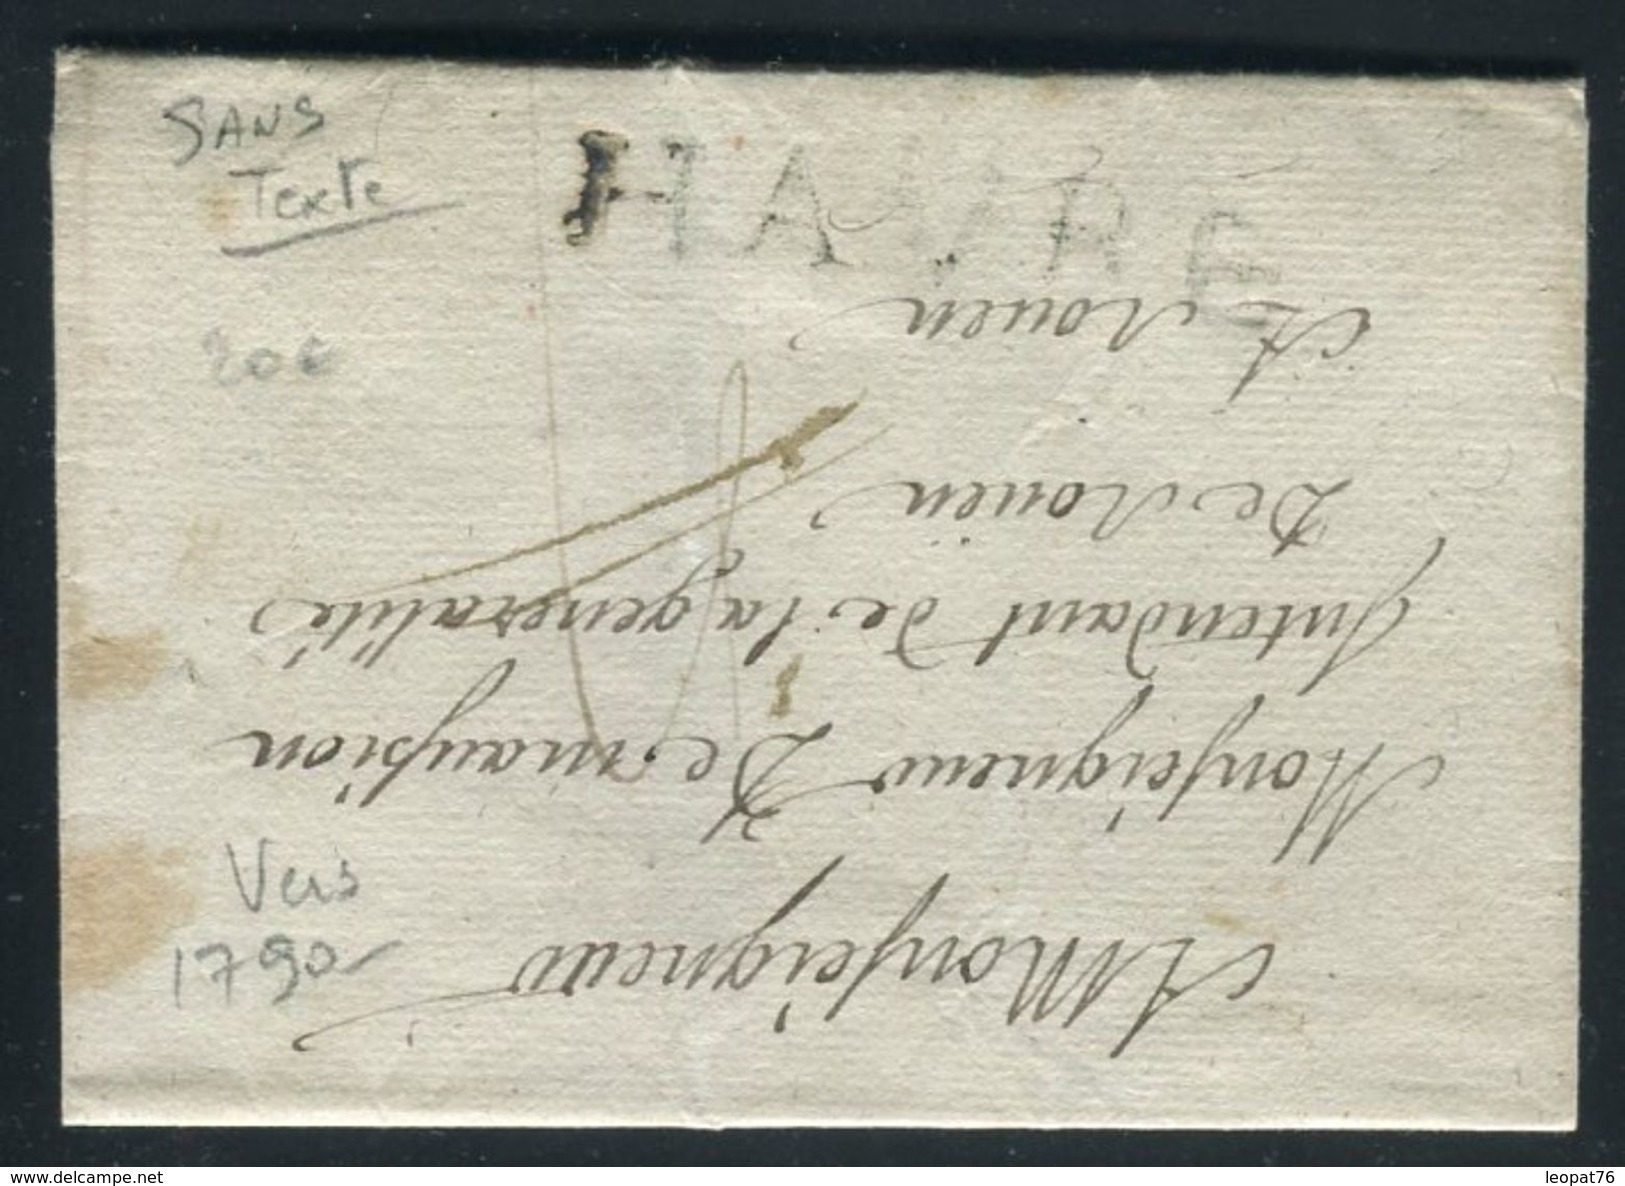 SANS
Texte
HAVRE
20€
Vers
1790
A Monseigneur
Monseigneur De maussion
Intendant de la generalité
De Rouen
A Rouen
www.delcampe.net
leopat76